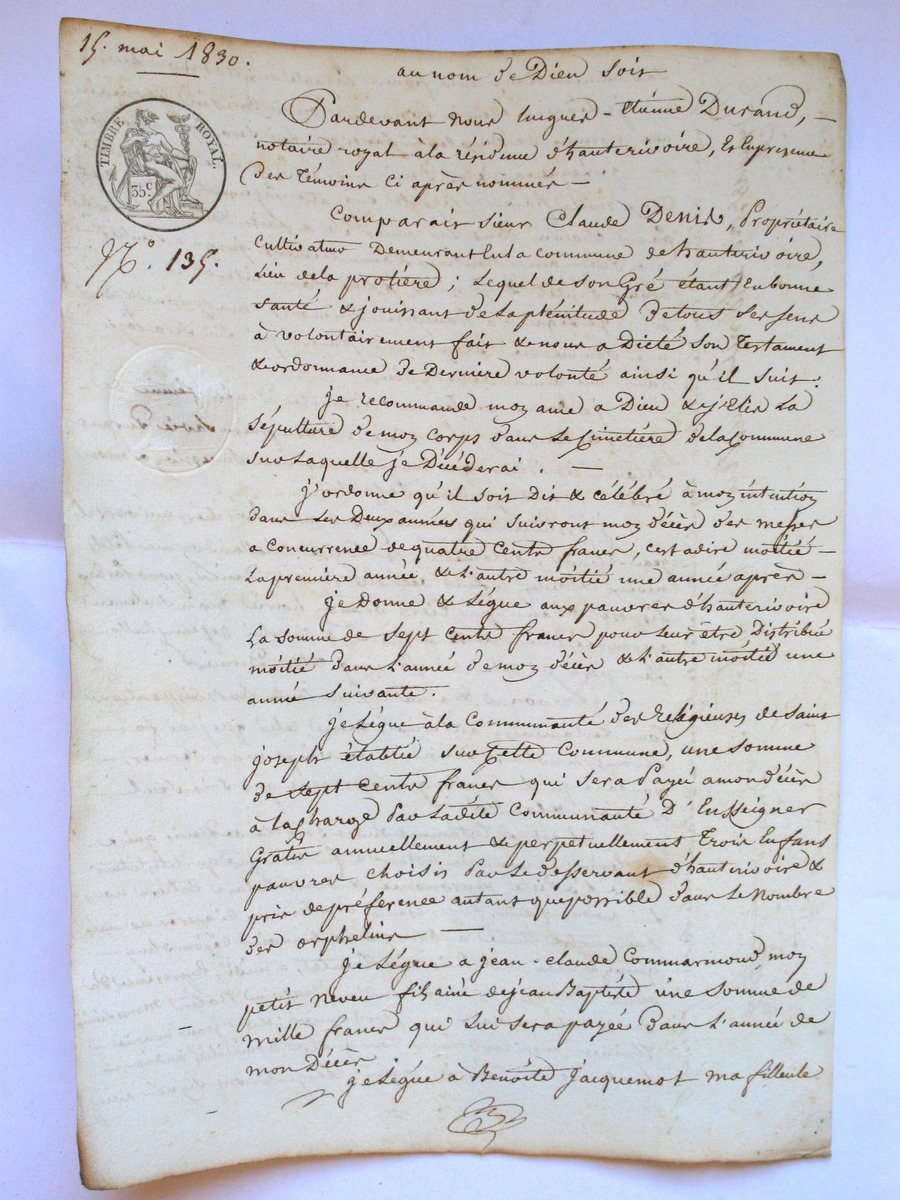 15. mai 1830.
au nom de Dieu soit
TIMBRE ROYAL
35 c
Pardevant Nous hugues - Etienne Durand, -
notaire royal à la résidence d'hauterivoire, En presence
Des Témoins Ci après nommés -
N.º 135.
Comparait Sieur Claude Denis, Propriétaire
Cultivateur Demeurant En la commune de hauterivoire,
Lieu de la protière ; Lequel de Son Gré étant En bonne
santé & jouissant de La plénitude De tous Ses Sens
à volontairement fait & nous a Dicté Son Testament
& ordonnance De Derniere volonté ainsi qu'il Suit :
je recommande mon ame a Dieu & j'Elis La
Sépulture De mon Corps Dans Le Cimetière De la Commune
Sur Laquelle je Décéderai . -
j'ordonne qu'il Soit Dit & Célébré à mon intention
Dans Les Deux années qui Suivront mon décès des messes
a Concurrence de quatre Cents francs, c'est a dire moitié -
La première année & L'autre moitié une année après -
je Donne & Légue aux pauvres d'hauterivoire
La Somme de Sept Cents francs pour Leur être Distribuée
moitié Dans L'année De mon décès & L'autre moitié une
année Suivante .
je Légue à la Communauté des religieuses de Saint
joseph établie Sur Cette Commune, une Somme
De Sept Cents francs qui Sera Payée a mon décès
à la charge Par La dite Communauté D'Enseigner
Gratis annuellement & perpetuellement Trois Enfans
pauvres choisis Par Le desservant d'hauterivoire &
pris de préference autant que possible Dans Le Nombre
des orphelins -
je Légue a jean - claude Commarmond, mon
petit neveu fils ainé de jean Baptiste une Somme de
mille francs qui Lui Sera payée Dans L'année de
mon Décès
je Légue à Benoite Jacquemot ma filleule